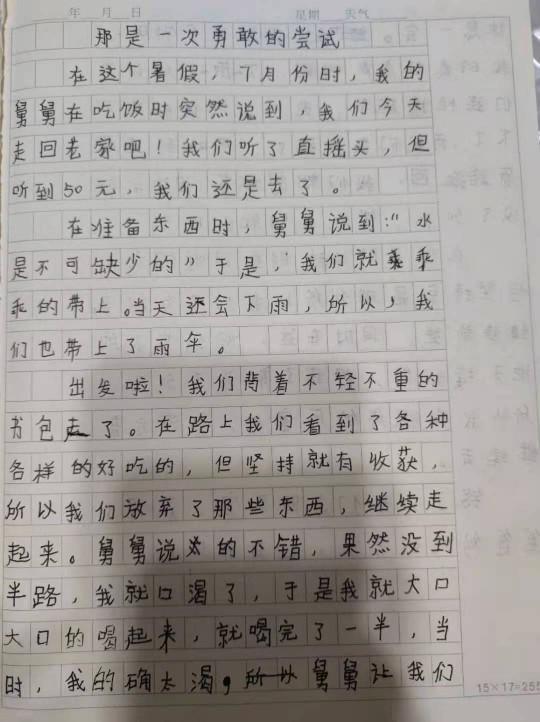 年 月 日 星期 天气
那是一次勇敢的尝试
在这个暑假，7月份时，我的
舅舅在吃饭时突然说到，我们今天
走回老家吧！我们听了直摇头，但
听到50元，我们还是去了。
在准备东西时，舅舅说到："水
是不可缺少的"于是，我们就乖乖
乖的带上。当天还会下雨，所以，我
们也带上了雨伞。
出发啦！我们背着不轻不重的
书包走了。在路上我们看到了各种
各样的好吃的，但坚持就有收获，
所以我们放弃了那些东西，继续走
起来。舅舅说的不错，果然没到
半路，我就口渴了，于是我就大口
大口的喝起来，就喝完了一半，当
时，我的确太渴，所以舅舅让我们
15×17=255